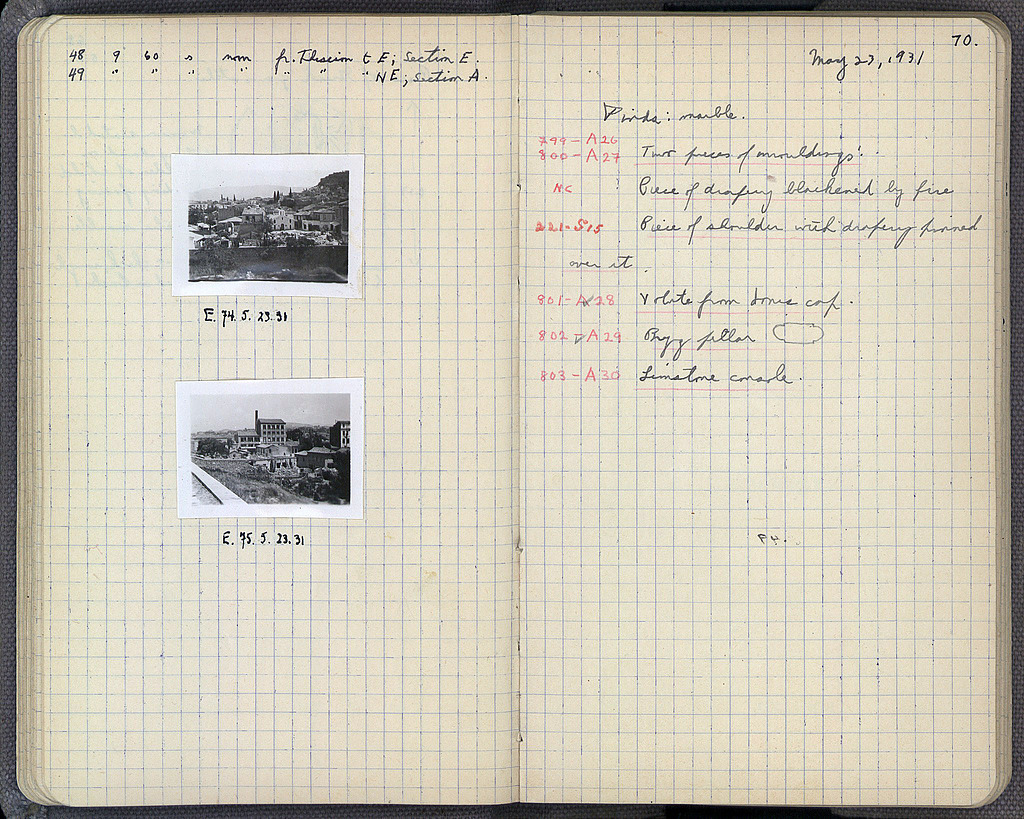 48 9 60 s nom fr. Theseion t E; Section E.
49 " " " " " " " NE; Section A.
E. 74. 5. 23. 31
E. 75. 5. 23. 31
70.
May 23, 1931
Finds: marble.
799 - A 26
800 - A 27 Two pieces of mouldings.
NC Piece of drapery blackened by fire
221 - S 15 Piece of shoulder with drapery pinned
over it.
801 - A 28 Volute from Ionic cap.
802 - A 29 Byz pillar
803 - A 30 Limstone console.